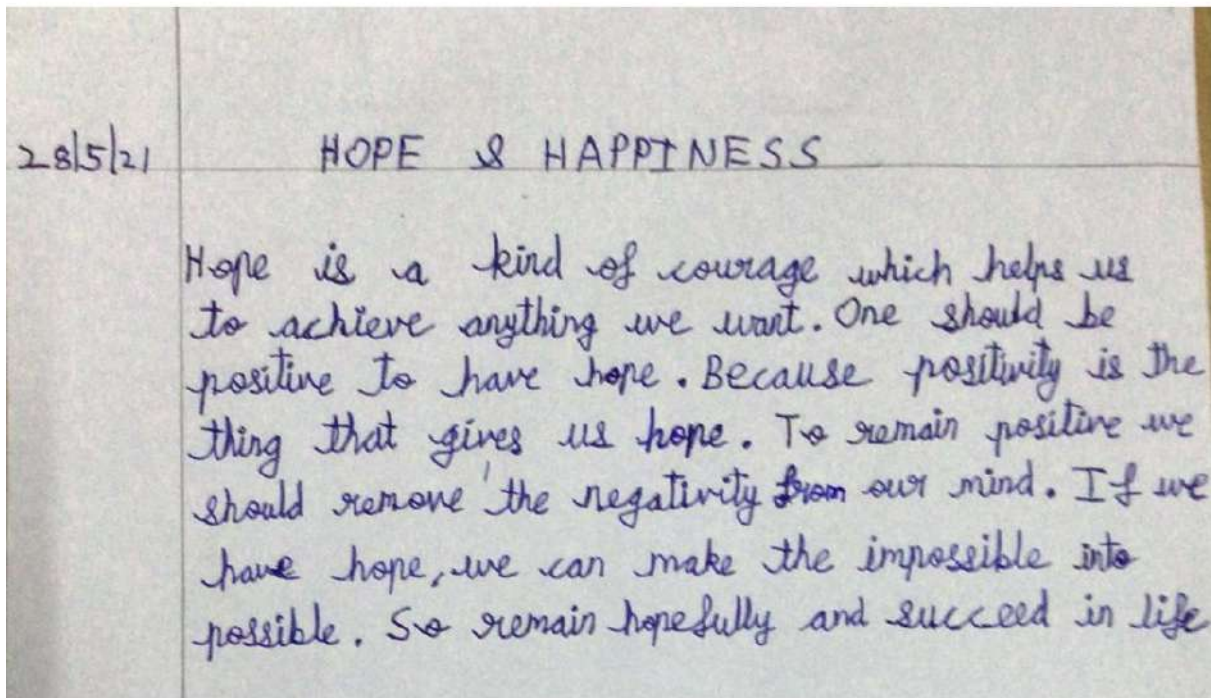 28/5/21 HOPE & HAPPINESS
Hope is a kind of courage which helps us
to achieve anything we want. One should be
positive to have hope. Because positivity is the
thing that gives us hope. To remain positive we
should remove the negativity from our mind. If we
have hope, we can make the impossible into
possible. So remain hopefully and succeed in life